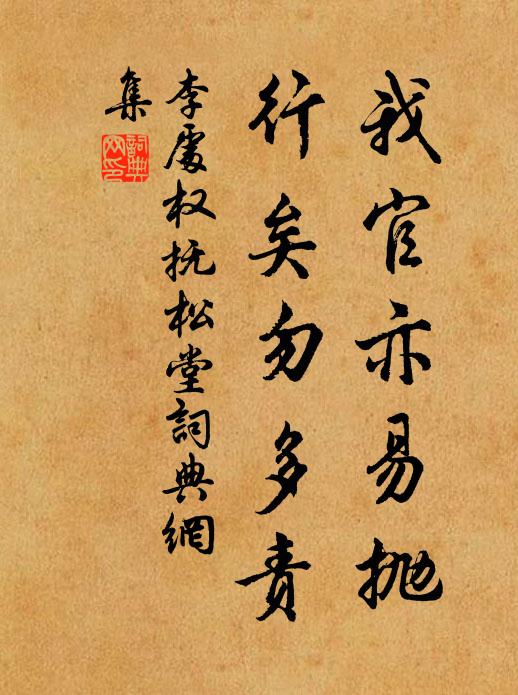 我官亦易抛
行矣勿多责
李處权抚松堂詞典網
集
詞典網印